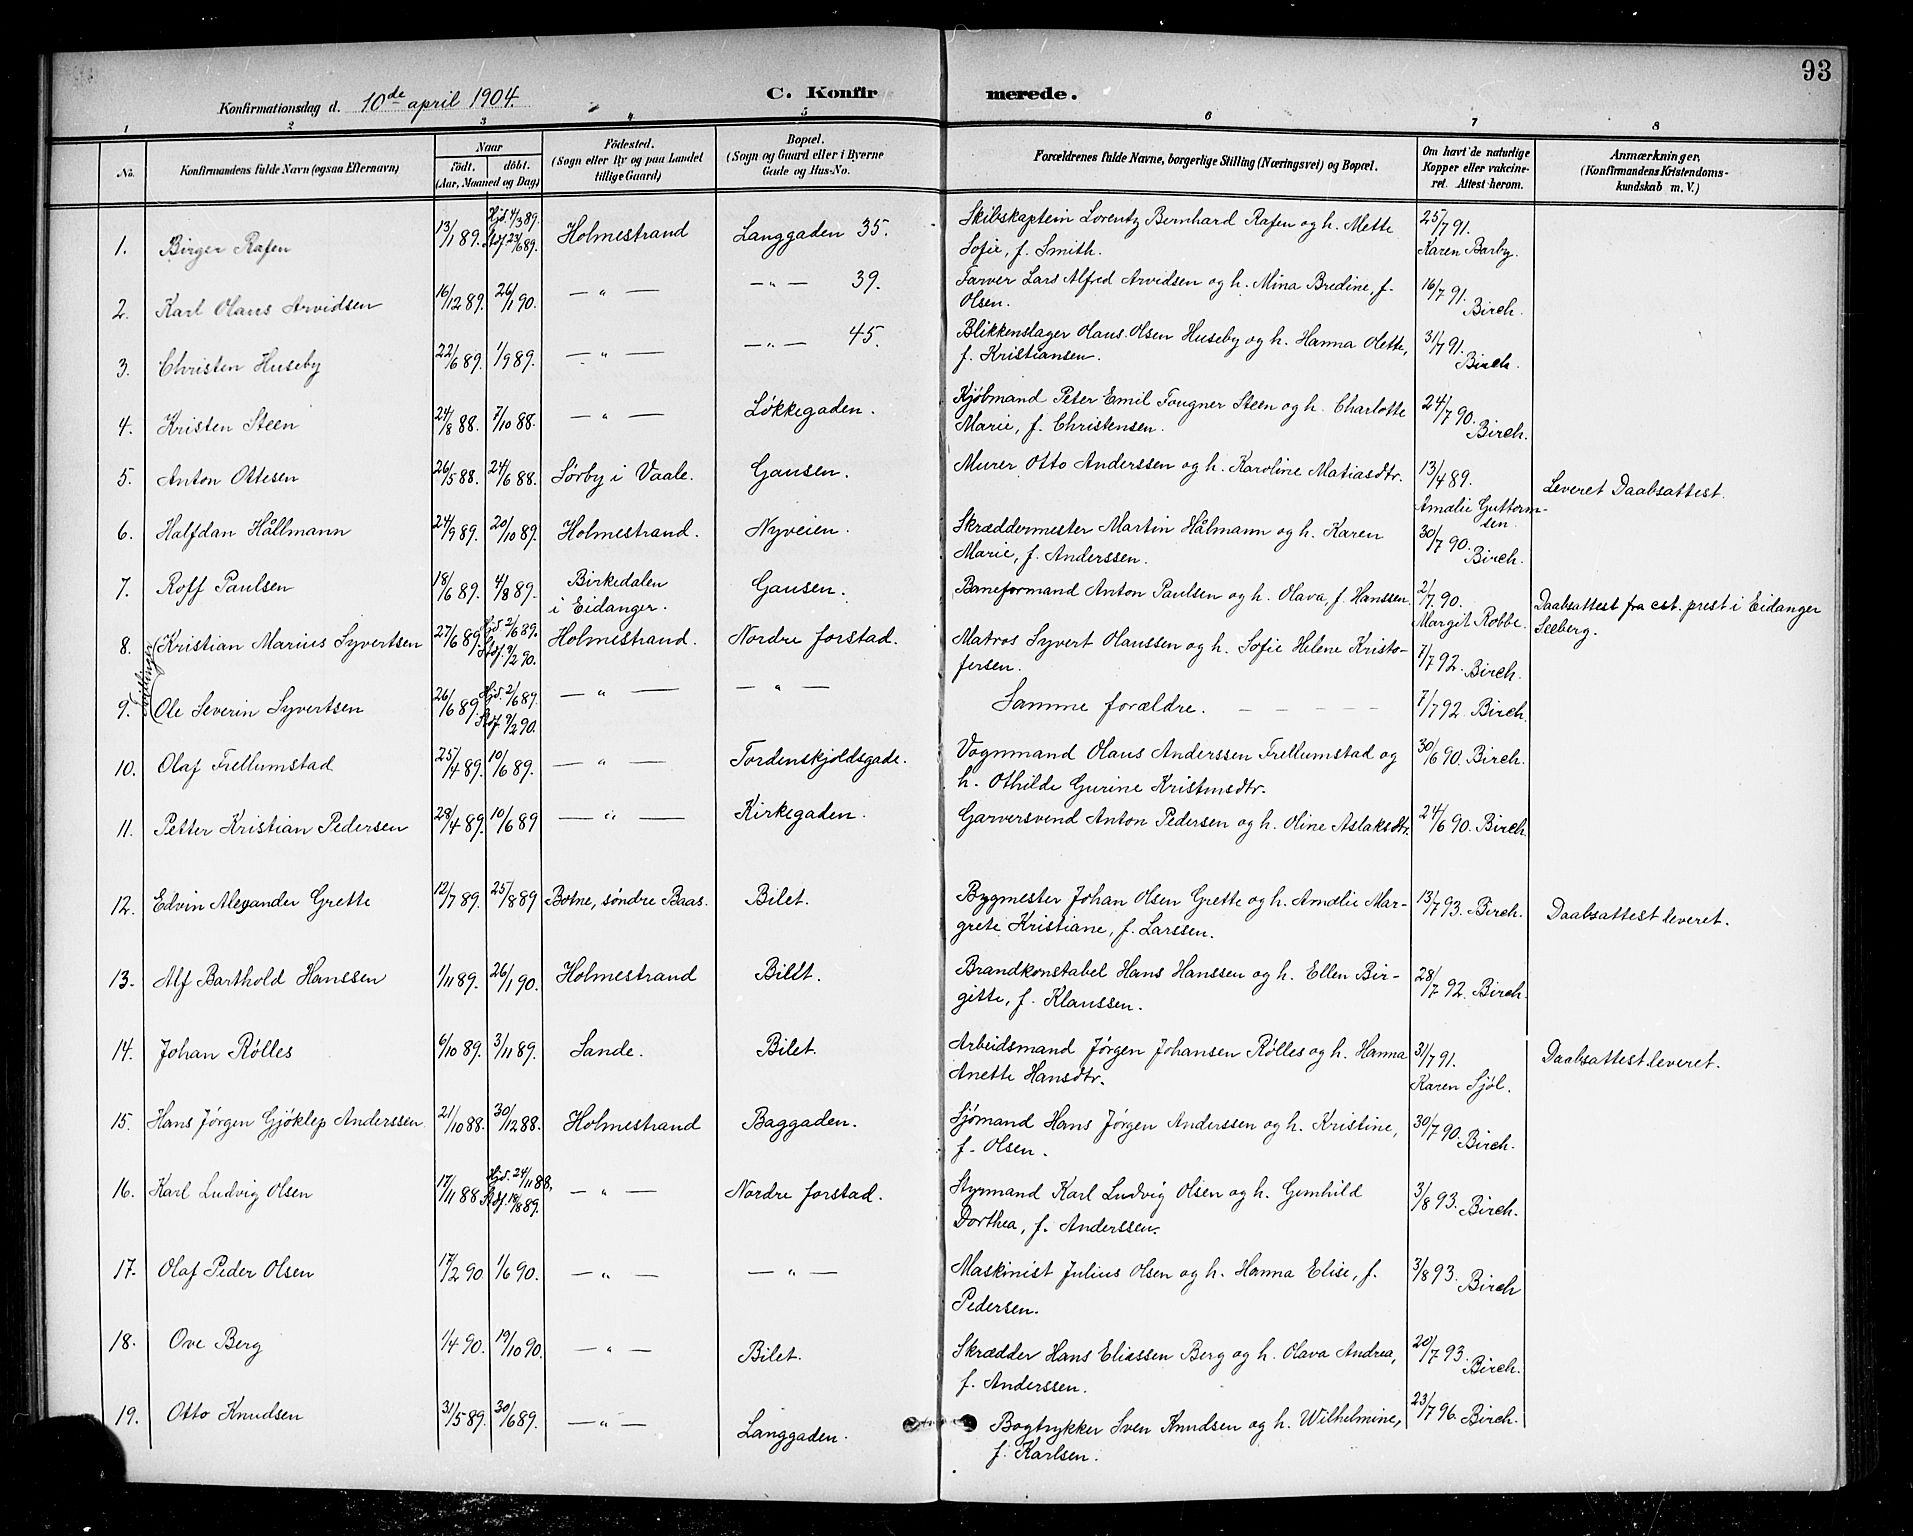 93
Konfirmationsdag d. 10de april 1904.
C. Konfirmerede.
1 2 3 4 5 6 7 8
No.
Konfirmandens fulde Navn (ogsaa Efternavn)
Naar
Født. døbt.
(Aar, Maaned og Dag)
Fødested.
(Sogn eller By og paa Landet
tillige Gaard)
Bopæl.
(Sogn og Gaard eller i Byerne
Gade og Hus-No.
Forældrenes fulde Navne, borgerlige Stilling (Næringsvei) og Bopæl.
Om havt de naturlige
Kopper eller vakcine-
ret. Attest herom.
Anmærkninger,
(Konfirmandens Kristendoms-
kundskab m. V.)
1. Birger Rafen 13/1 89. Hjd. 4/3 89. Stdf. 23/6 89. Holmestrand Langgaden 35. Skibskaptein Lorentz Bernhard Rafen og h. Mette
Sofie, f. Smith. 25/7 91. Karen Barby.
2. Karl Olaus Arvidsen 16/12 89. 26/1 90. — " — — " — 39. Farver Lars Alfred Arvidsen og h. Mina Bredine, f.
Olsen. 16/7 91. Birch.
3. Christen Huseby 22/6 89. 1/9 89. — " — — " — 45. Blikkenslager Olaus Olsen Huseby og h. Hanna Olette,
f. Kristiansen. 31/7 91. Birch.
4. Kristen Steen 24/8 88. 7/10 88. — " — Løkkegaden. Kjøbmand Peter Emil Fougner Steen og h. Charlotte
Marie, f. Christensen. 24/7 90. Birch.
5. Anton Ottesen 26/5 88. 24/6 88. Sørby i Vaale. Gausen. Murer Otto Anderssen og h. Karoline Matiasdtr. 13/4 89.
Amalie Guttorm-
sen. Leveret Daabsattest.
6. Halfdan Hållmann 24/9 89. 20/10 89. Holmestrand. Nyveien. Skræddermester Martin Hålmann og h. Karen
Marie, f. Anderssen. 30/7 90. Birch.
7. Roff Paulsen 18/6 89. 4/8 89. Birkedalen
i Eidanger. Gausen. Baneformand Anton Paulsen og h. Olava, f. Hanssen. 2/7 90.
Margit Robbe. Daabsattest fra cst. prest i Eidanger
Seeberg.
Tvillinger
8. Kristian Marius Syvertsen 27/6 89. Hjd. 2/6 89. Stdf. 9/2 90. Holmestrand. Nordre forstad. Matros Syvert Olaussen og h. Sofie Helene Kristo-
fersen. 7/7 92. Birch.
9. Ole Severin Syvertsen 26/6 89. Hjd. 2/6 89. Stdf. 9/2 90. — " — — " — Samme forældre. — — — — 7/7 92. Birch.
10. Olaf Frellumstad 25/4 89. 10/6 89. — " — Tordenskjoldsgade. Vognmand Olaus Anderssen Frellumstad og
h. Othilde Gurine Kristensdtr. 30/6 90. Birch.
11. Petter Kristian Pedersen 28/4 89. 10/6 89 — " — Kirkegaden. Garversvend Anton Pedersen og h. Oline Aslaksdtr. 24/6 90. Birch.
12. Edvin Alexander Grette 12/7 89. 25/8 89 Botne, søndre Baas. Bilet. Bygmester Johan Olsen Grette og h. Amalie Mar-
grete Kristiane, f. Larssen. 13/7 93. Birch. Daabsattest leveret.
13. Alf Barthold Hanssen 1/11 89. 26/1 90. Holmestrand Bilet. Brandkonstabel Hans Hanssen og h. Ellen Bir-
gitte, f. Klaussen. 28/7 92. Birch.
14. Johan Rølles 6/10 89. 3/11 89. Sande. Bilet. Arbeidsmand Jørgen Johansen Rølles og h. Hanna
Anette Hansdtr. 31/7 91. Karen Sjøl. Daabsattest leveret.
15. Hans Jørgen Gjøklep Anderssen. 21/10 88. 30/12 88. Holmestrand Baggaden. Sjømand Hans Jørgen Anderssen og h. Kristine,
f. Olsen. 30/7 90. Birch.
16. Karl Ludvig Olsen 17/11 88. Hjd. 24/11 88. Stdf. 18/8 89. — " — Nordre forstad. Styrmand Karl Ludvig Olsen og h. Gunhild
Dorthea, f. Anderssen. 3/8 93. Birch.
17. Olaf Peder Olsen 17/2 90 1/6 90. — " — — " — Maskinist Julius Olsen og h. Hanna Elise, f.
Pedersen. 3/8 93. Birch
18. Ove Berg 1/4 90. 19/10 90. — " — Bilet. Skrædder Hans Eliassen Berg og h. Olava Andrea,
f. Anderssen. 20/7 93. Birch.
19. Otto Knudsen 31/5 89. 30/6 89. — " — Langgaden. Bogtrykker Sven Knudsen og h. Wilhelmine,
f. Karlsen. 23/7 96. Birch.